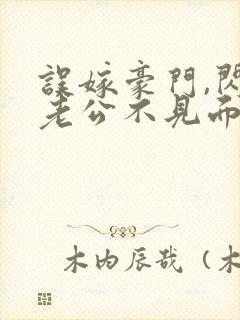 誤嫁豪門,閃
老公不見而
木内辰哉（木